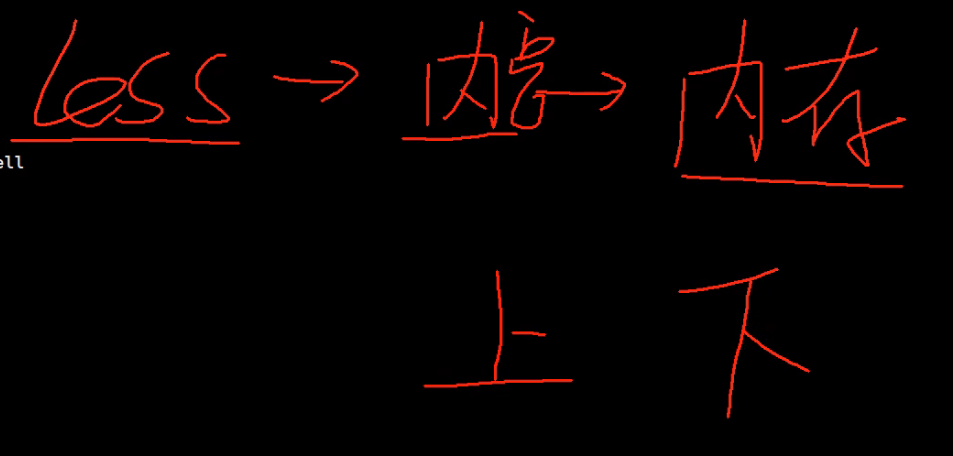 less → 内容 → 内存
ell
上 下